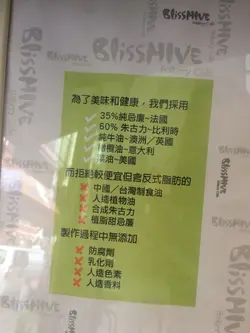 BlissHIVE
BlissHIVE
為了美味和健康，我們採用
✓ 35%純忌廉~法國
✓ 60% 朱古力~比利時
✓ 純牛油~澳洲／英國
✓ 橄欖油~意大利
油~美國
而拒絕較便宜但含反式脂肪的
✗ 中國／台灣制食油
✗ 人造植物油
✗ 合成朱古力
✗ 植脂甜忌廉
製作過程中無添加
✗ 防腐劑
✗ 乳化劑
✗ 人造色素
✗ 人造香料